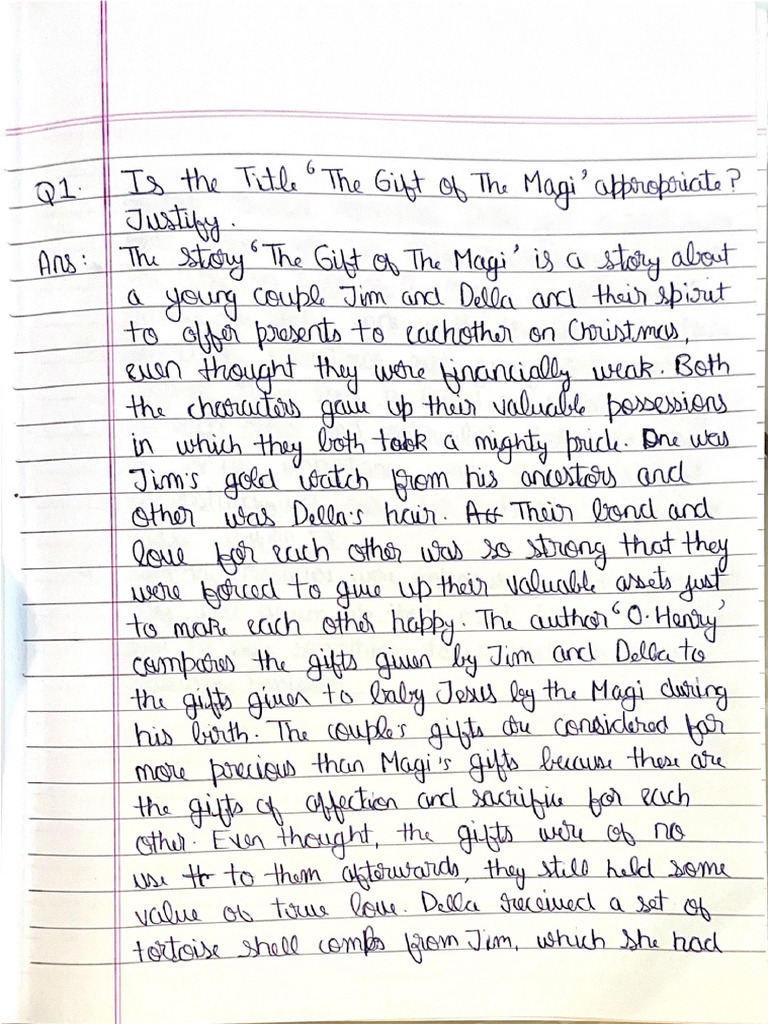 Q1. Is the Title 'The Gift of The Magi' appropriate?
Justify.
Ans: The story 'The Gift of The Magi' is a story about
a young couple Jim and Della and their spirit
to offer presents to eachother on Christmas,
even thought they were financially weak. Both
the characters gave up their valuable possessions
in which they both took a mighty pride. One was
Jim's gold watch from his ancestors and
other was Della's hair. Their bond and
love for each other was so strong that they
were forced to give up their valuable assets just
to make each other happy. The author 'O. Henry'
compares the gifts given by Jim and Della to
the gifts given to baby Jesus by the Magi during
his birth. The couple's gifts are considered far
more precious than Magi's gifts because these are
the gifts of affection and sacrifice for each
other. Even thought, the gifts were of no
use to them afterwards, they still held some
value of true love. Della received a set of
tortoise shell combs from Jim, which she had